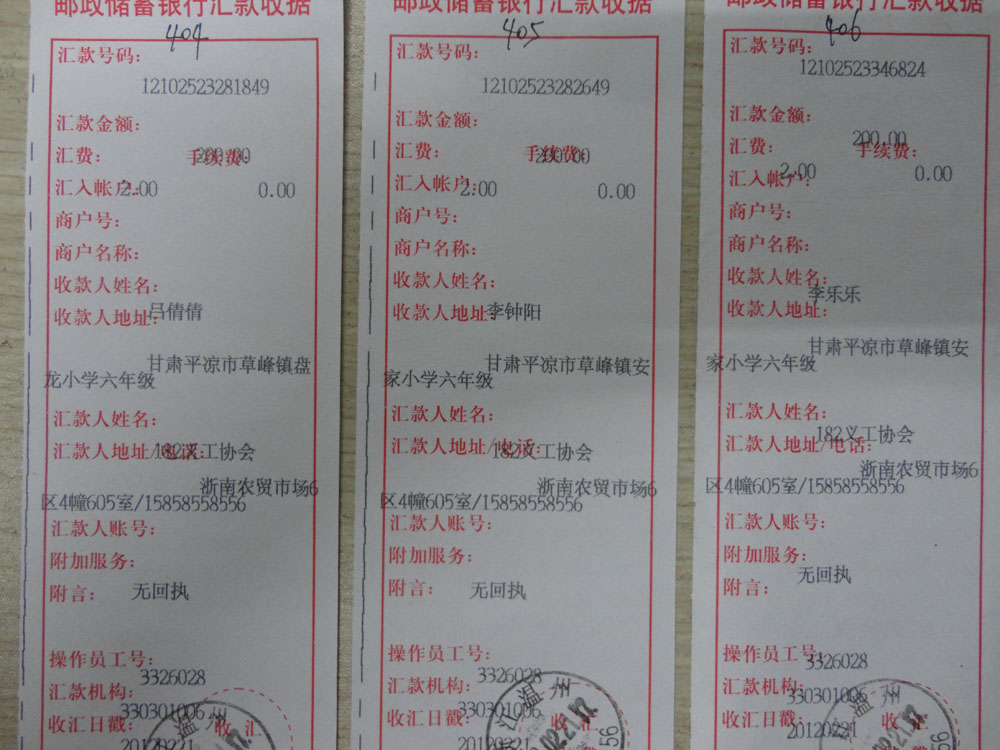 邮政储蓄银行汇款收据
404
汇款号码:
12102523281849
汇款金额:
200.00
汇费:
手续费:
2.00
0.00
汇入帐户:
商户号:
商户名称:
收款人姓名:
吕倩倩
收款人地址:
甘肃平凉市草峰镇盘
龙小学六年级
汇款人姓名:
182义工协会
汇款人地址/电话:
浙南农贸市场6
区4幢605室/15858558556
汇款人账号:
附加服务:
附言:
无回执
操作员工号:
3326028
汇款机构:
330301006
收汇日戳:
收汇
20120221
邮政储蓄银行汇款收据
405
汇款号码:
12102523282649
汇款金额:
200.00
汇费:
手续费:
2.00
0.00
汇入帐户:
商户号:
商户名称:
收款人姓名:
李钟阳
收款人地址:
甘肃平凉市草峰镇安
家小学六年级
汇款人姓名:
182义工协会
汇款人地址/电话:
浙南农贸市场6
区4幢605室/15858558556
汇款人账号:
附加服务:
附言:
无回执
操作员工号:
3326028
汇款机构:
330301006
收汇日戳:
收汇
20120221
邮政储蓄银行汇款收据
406
汇款号码:
12102523346824
汇款金额:
200.00
汇费:
手续费:
2.00
0.00
汇入帐户:
商户号:
商户名称:
收款人姓名:
李乐乐
收款人地址:
甘肃平凉市草峰镇安
家小学六年级
汇款人姓名:
182义工协会
汇款人地址/电话:
浙南农贸市场6
区4幢605室/15858558556
汇款人账号:
附加服务:
附言:
无回执
操作员工号:
3326028
汇款机构:
330301006
收汇日戳:
收汇
20120221